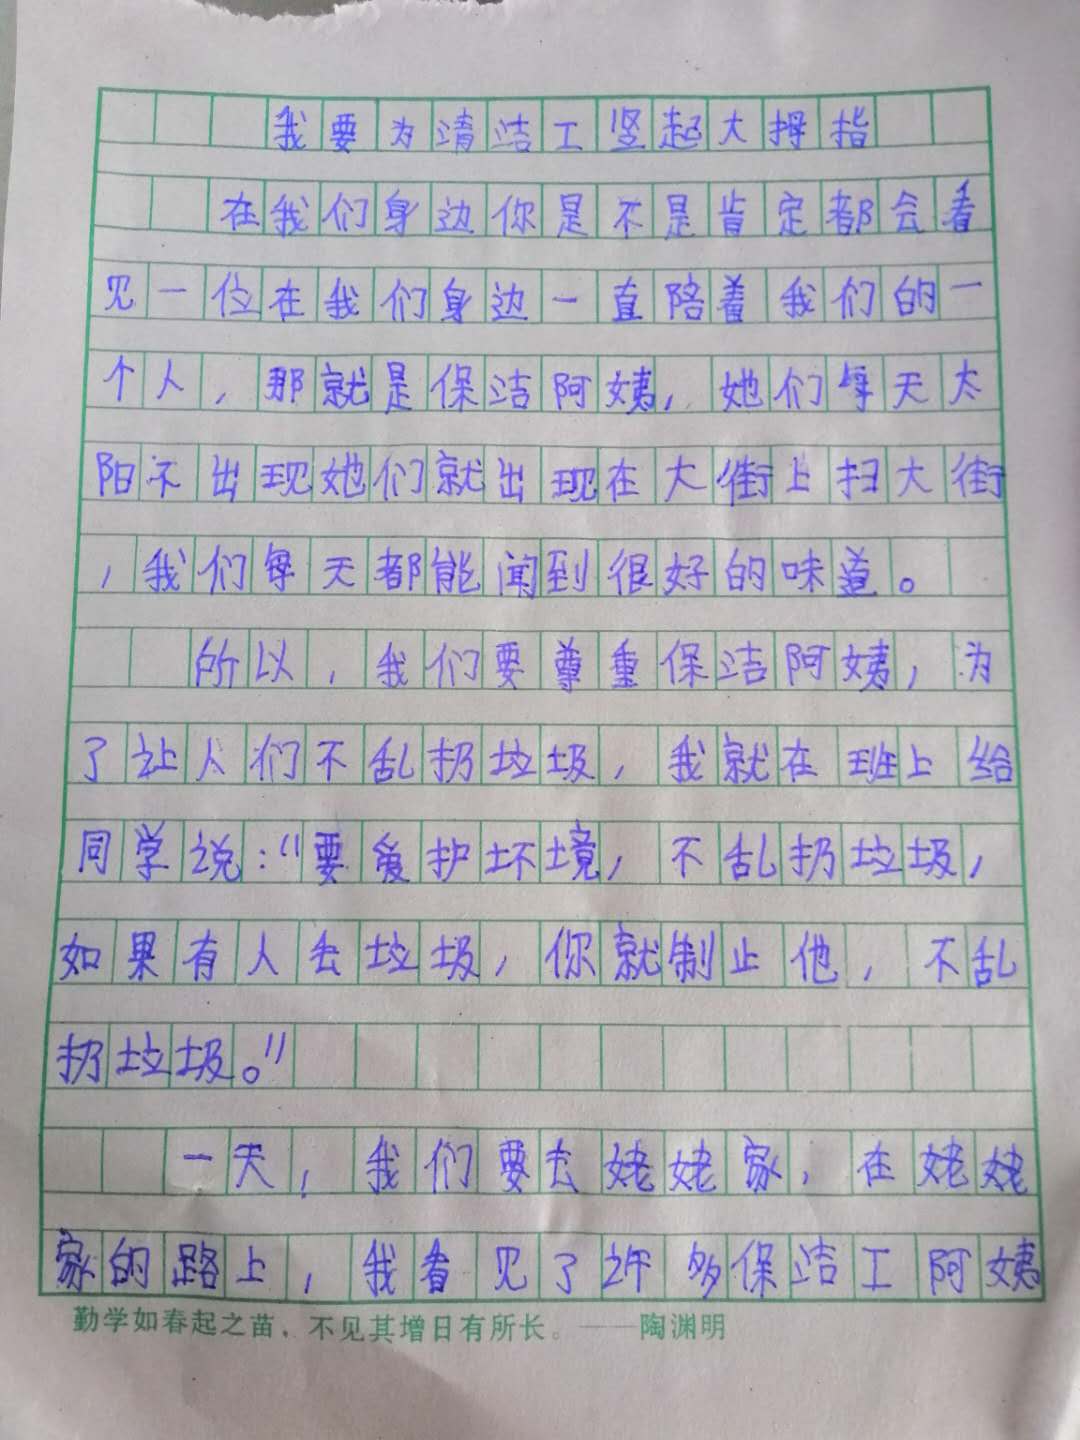 我要为清洁工竖起大拇指
在我们身边你是不是肯定都会看
见一位在我们身边一直陪着我们的一
个人，那就是保洁阿姨，她们每天太
阳不出现她们就出现在大街上扫大街
，我们每天都能闻到很好的味道。
所以，我们要尊重保洁阿姨，为
了让人们不乱扔垃圾，我就在班上给
同学说：“要爱护坏境，不乱扔垃圾，
如果有人丢垃圾，你就制止他，不乱
扔垃圾。”
一天，我们要去姥姥家，在姥姥
家的路上，我看见了许多保洁工阿姨
勤学如春起之苗，不见其增日有所长。——陶渊明